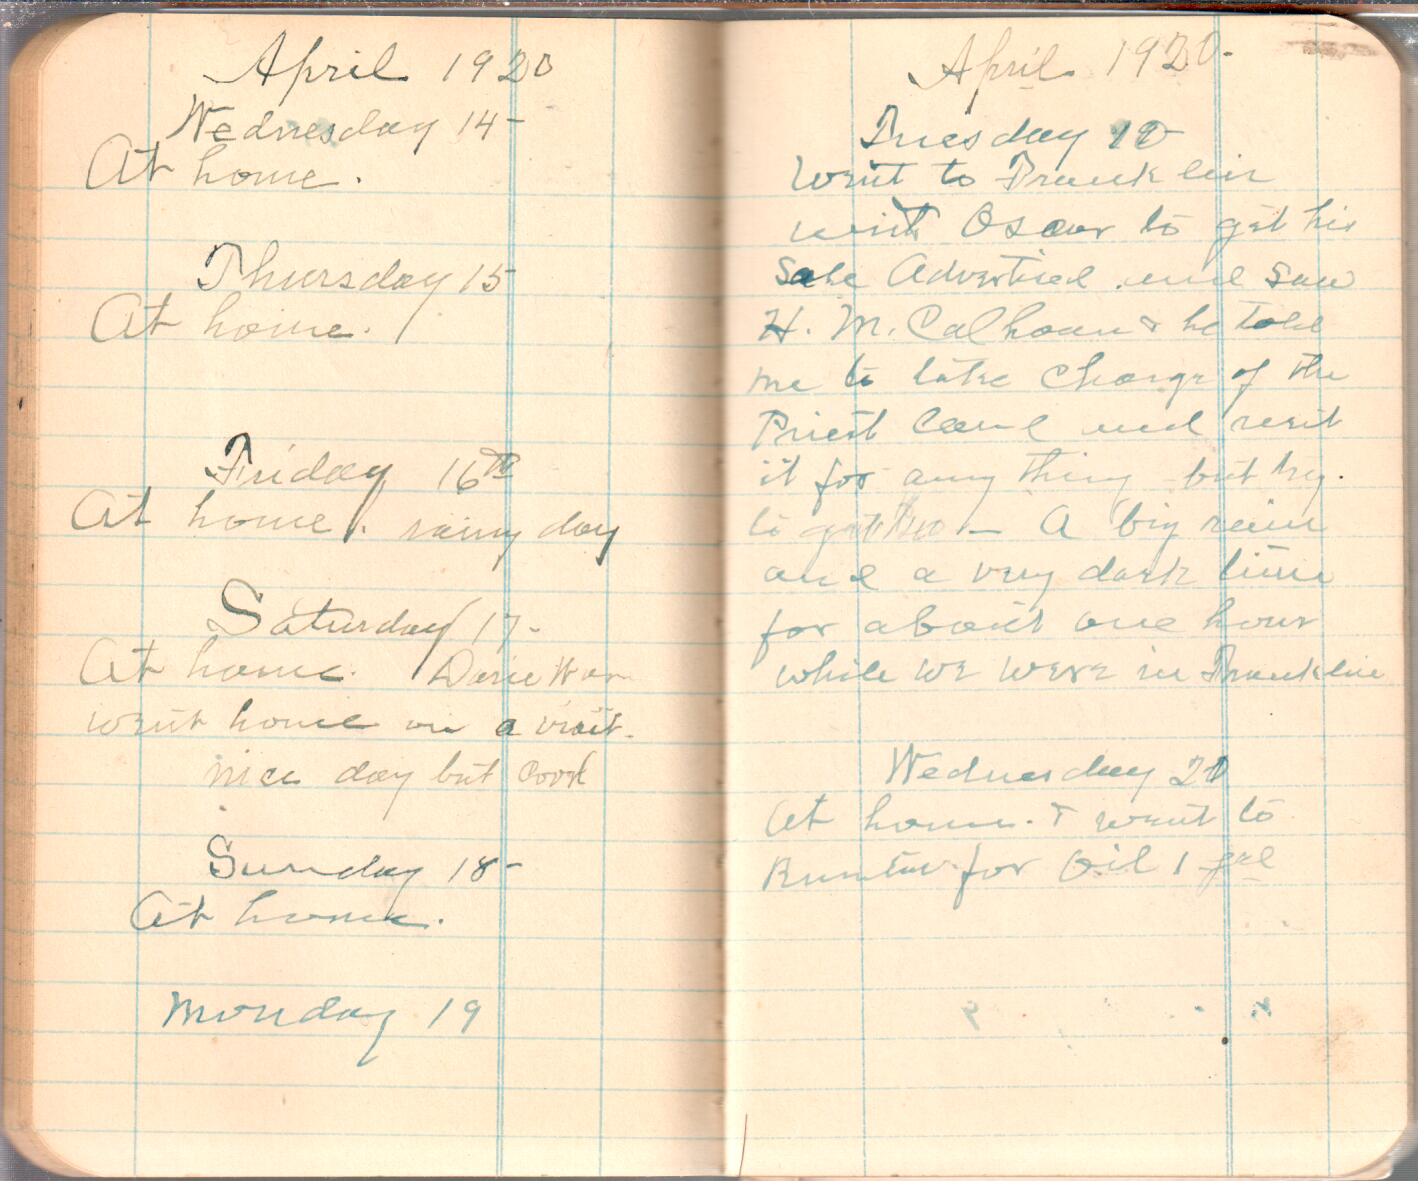 April 1920
Wednesday 14-
At home.
Thursday 15
At home.
Friday 16th
At home. rainy day
Saturday 17-
At home.
went home on a visit.
nice day but cool
Sunday 18-
At home.
Monday 19
April 1920-
Tuesday 20
Went to Franklin
with Oscar to get his
Sale Advertised and saw
H. M. Calhoun & he told
me to take charge of the
Priest land and rent
it for any thing but try.
to get - A big rain
and a very dark time
for about one hour
while we were in Franklin
Wednesday 21
At home. & went to
for Oil 1 gal